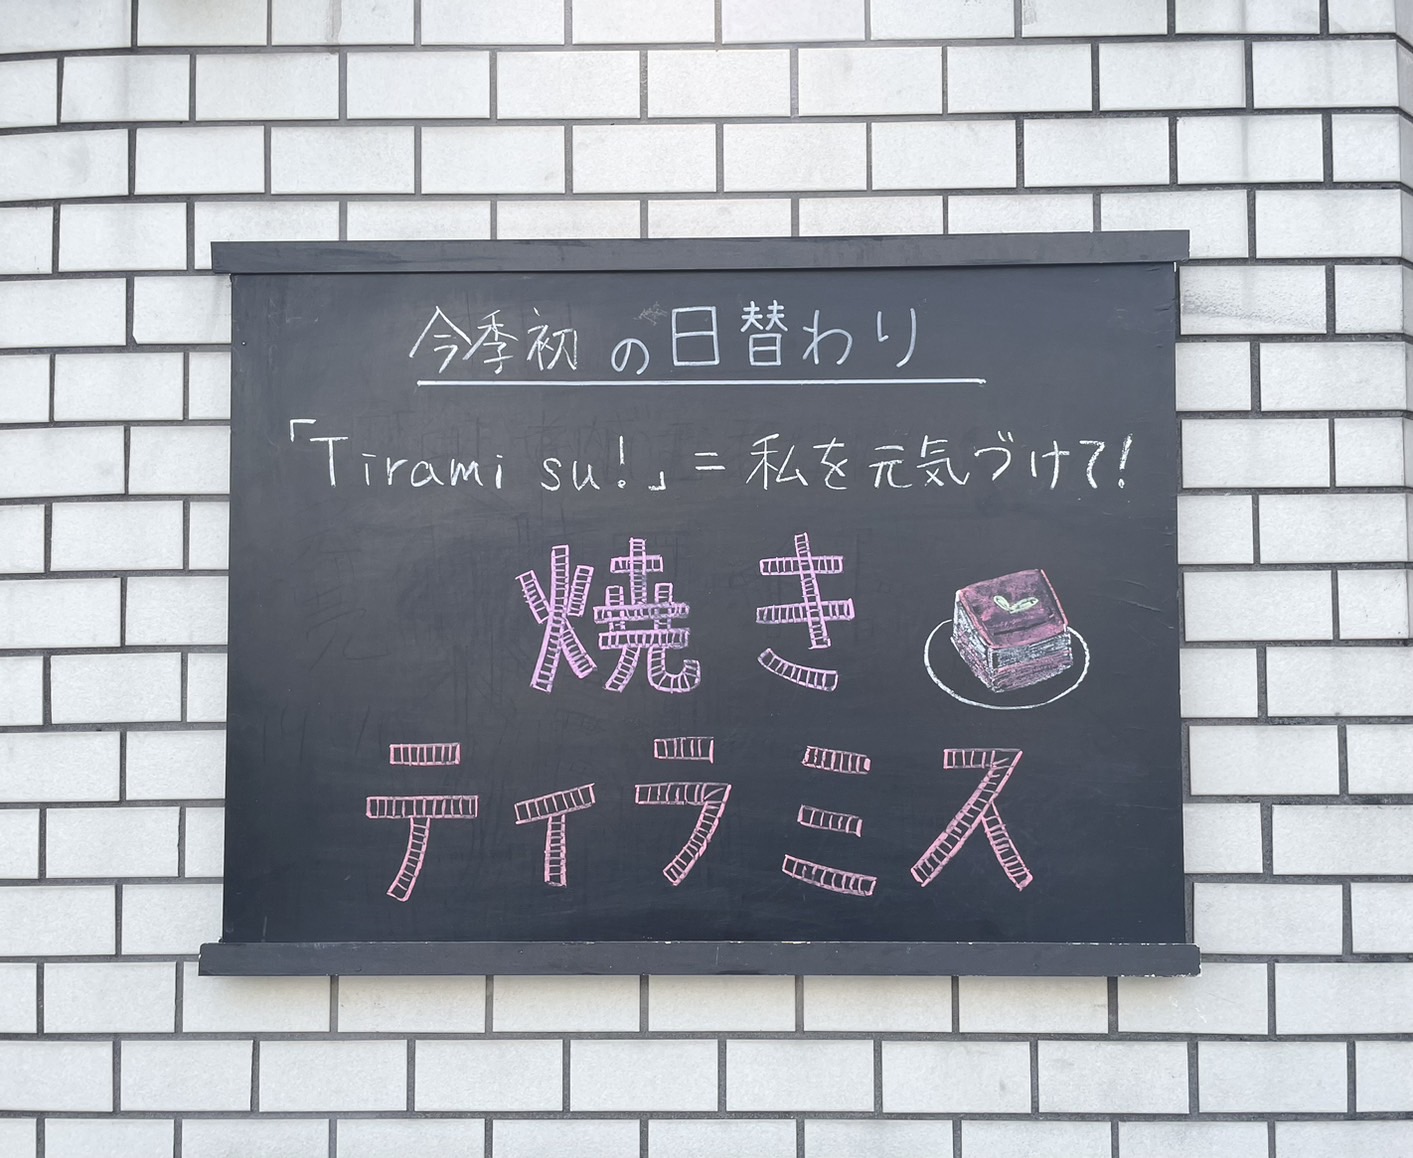 今季初の日替わり
「Tirami su!」=私を元気づけて!
焼き
ティラミス